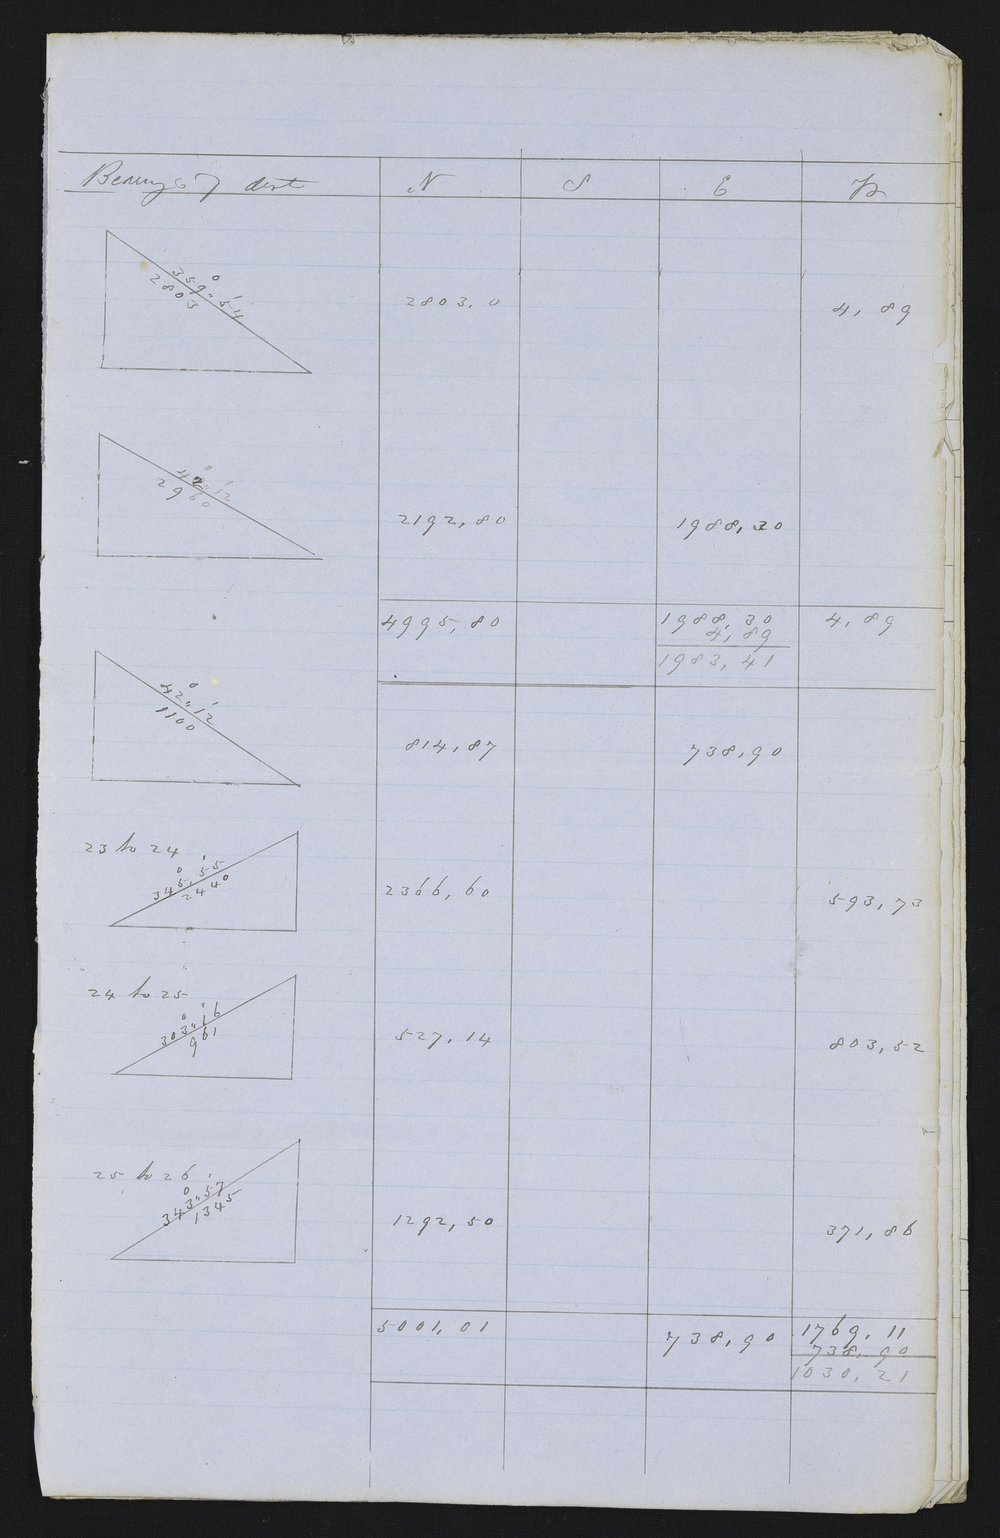 Bearing & dist N S E W
359°..54'
2803
2803,0 4,89
42°..12'
2960
2192,80 1988,30
4995,80 1988,30 4,89
4,89
1983,41
42°..12'
1100
814,87 738,90
23 to 24
345°..55'
2440
2366,60 593,73
24 to 25
303°..16'
961
527,14 803,52
25 to 26
343°..57'
1345
1292,50 371,86
5001,01 738,90 1769,11
738,90
1030,21